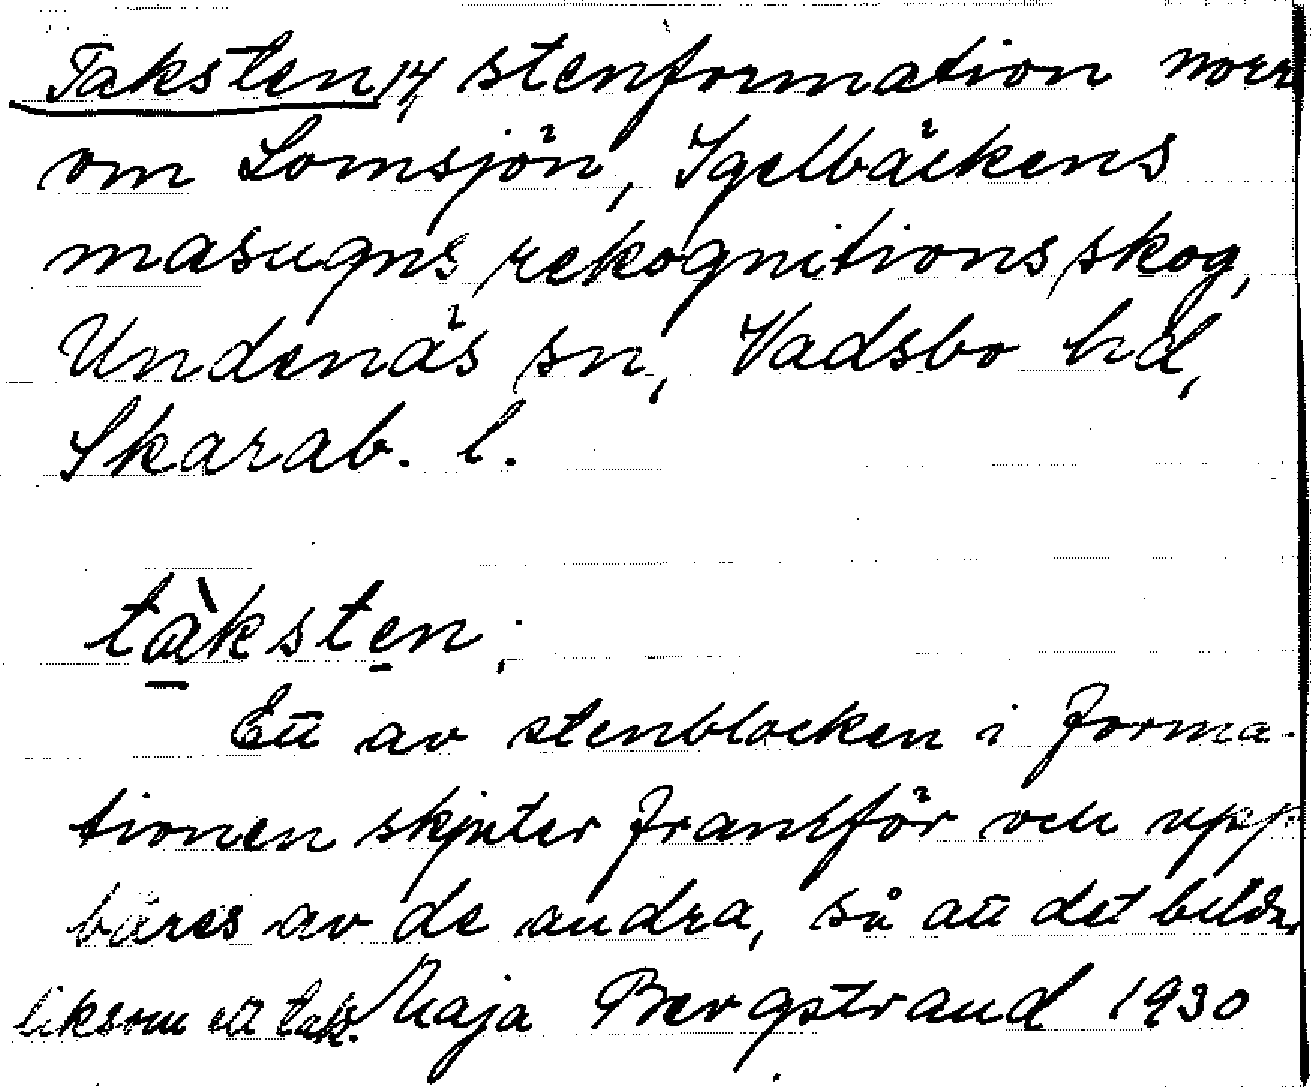 Taksten 14 stenformation norr
om Lomsjön, Igelbäckens
masugns rekognitionsskog,
Undenäs sn, Vadsbo hd,
Skarab. l.
tàksten;
Ett av stenblocken i forma-
tionen skjuter framför och upp-
bäres av de andra, så att det bildar
liksom ett tak. Maja Bergstrand 1930